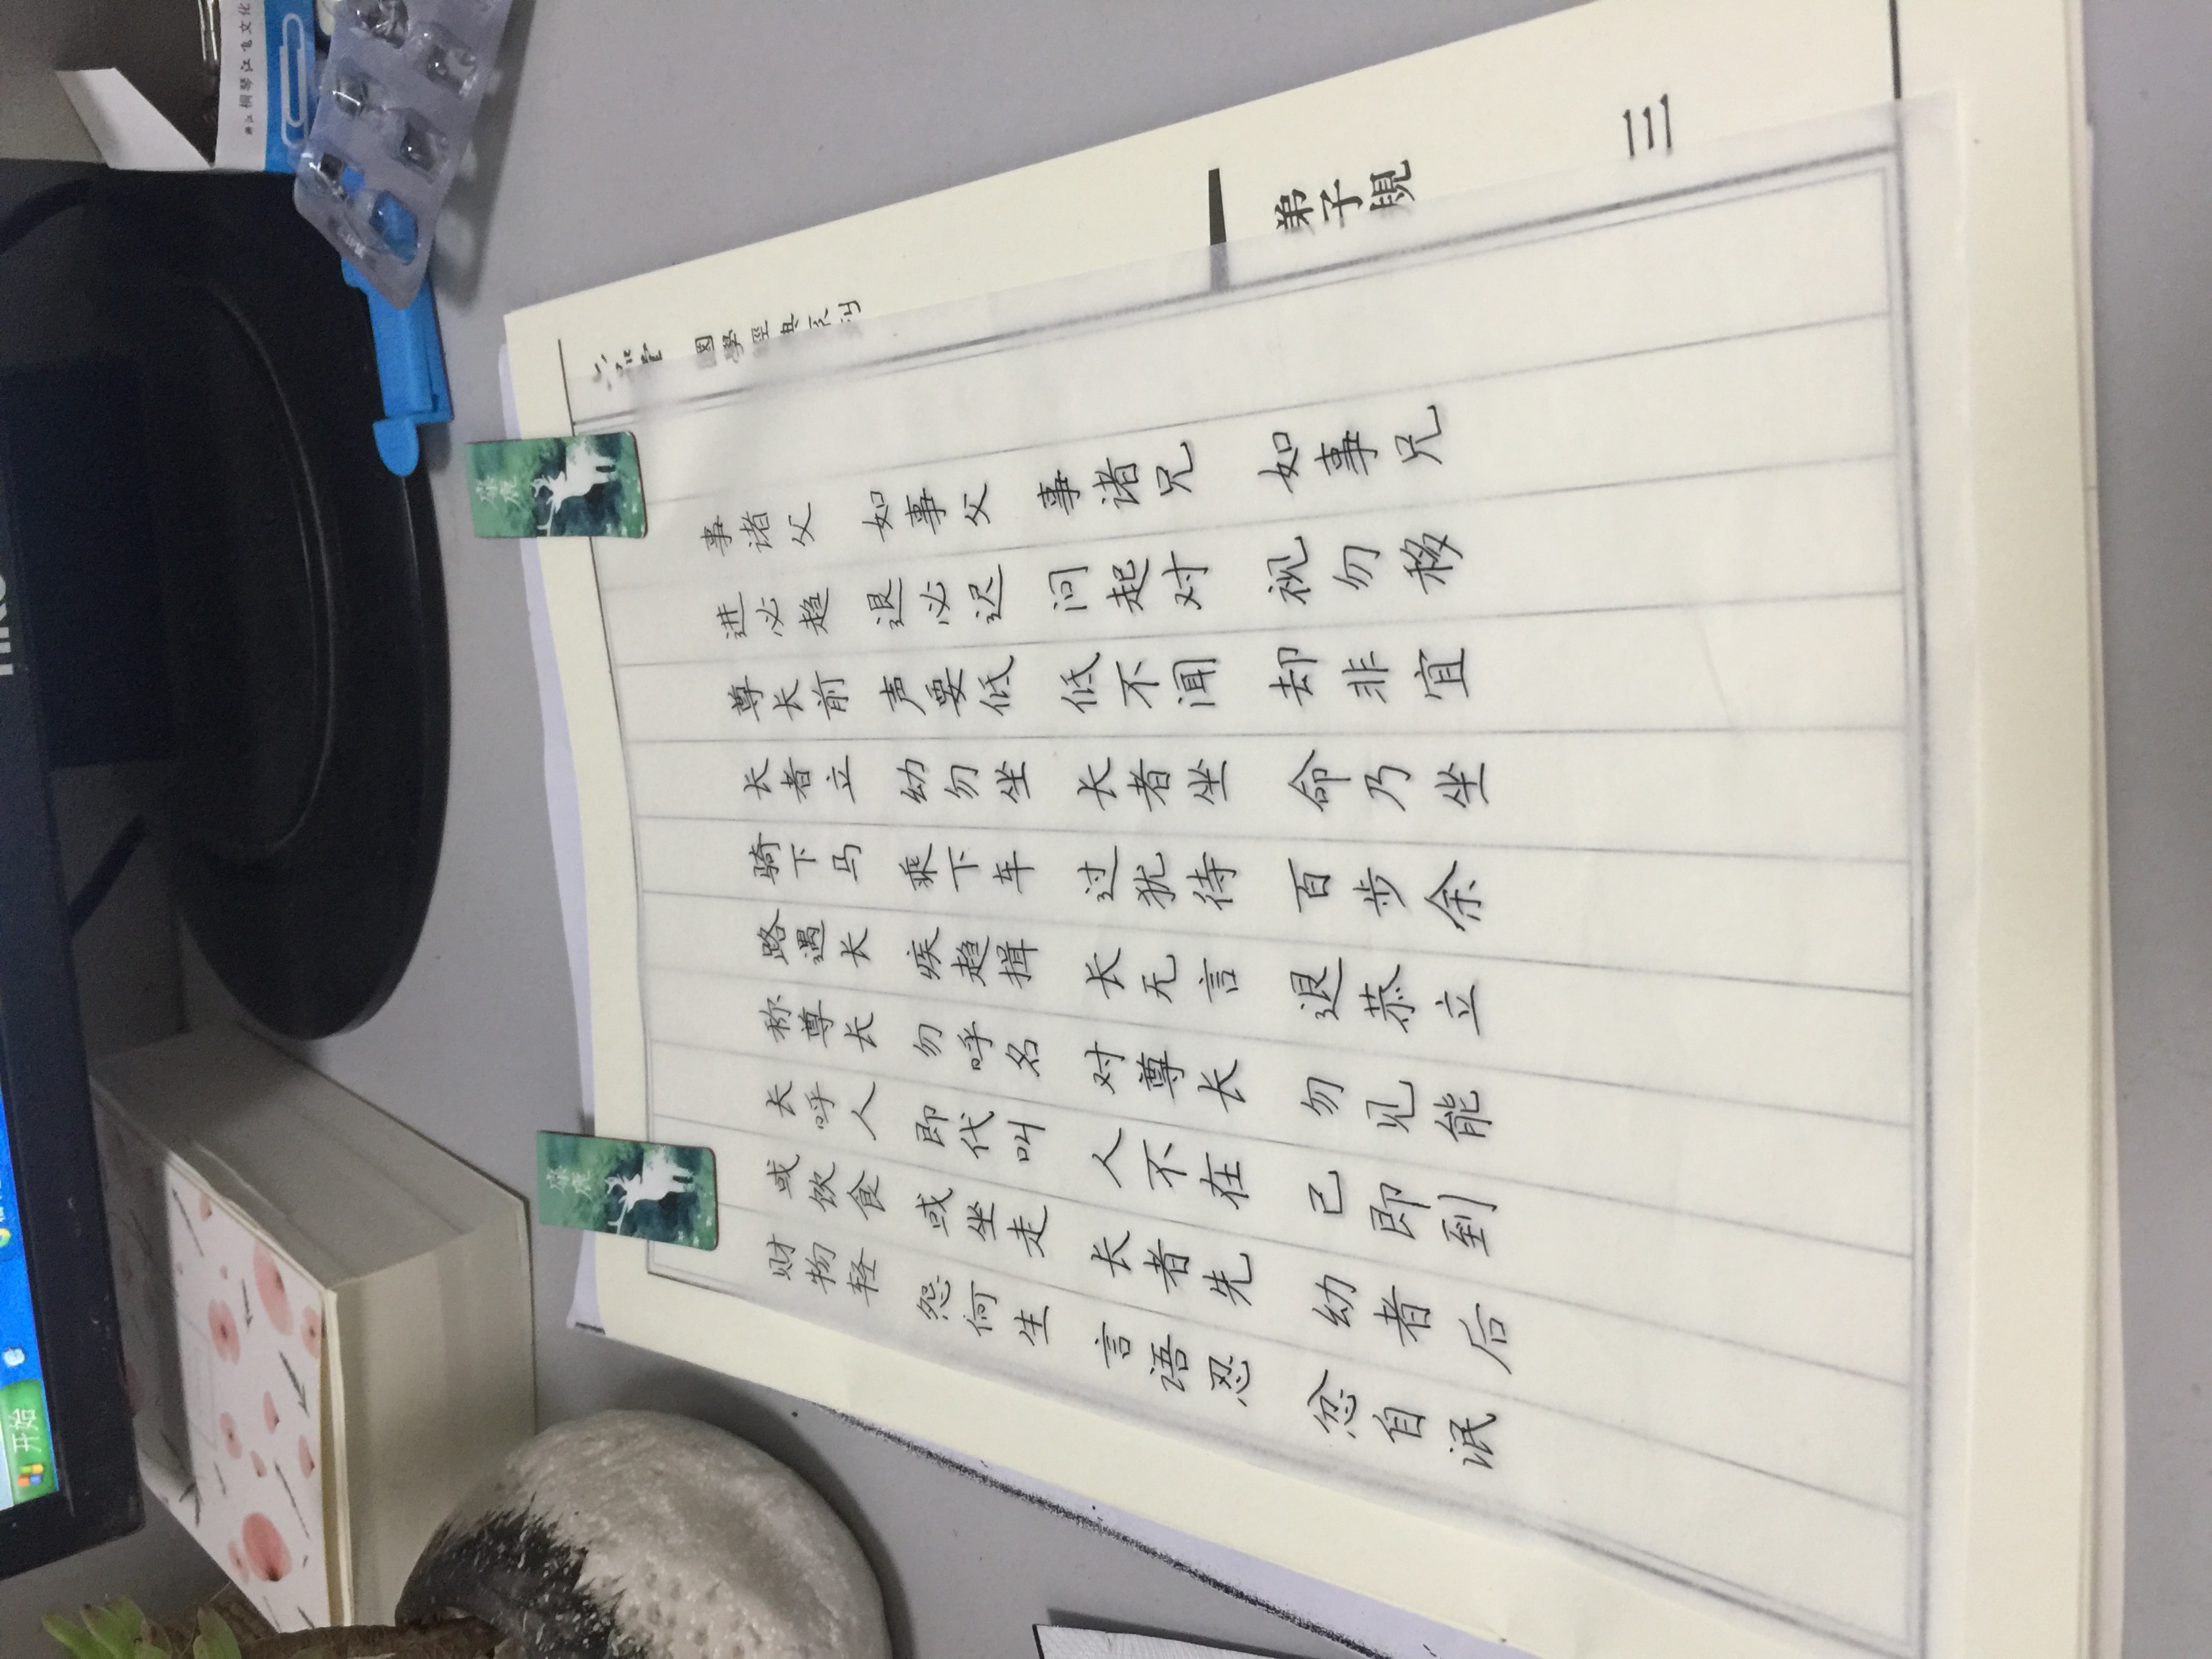 开始
浙江桐琴江飞文化
康鹿
康鹿
六品堂 國學經典系列
弟子規
三
事诸父 如事父 事诸兄 如事兄
进必趋 退必迟 问起对 视勿移
尊长前 声要低 低不闻 却非宜
长者立 幼勿坐 长者坐 命乃坐
骑下马 乘下车 过犹待 百步余
路遇长 疾趋揖 长无言 退恭立
称尊长 勿呼名 对尊长 勿见能
长呼人 即代叫 人不在 己即到
或饮食 或坐走 长者先 幼者后
财物轻 怨何生 言语忍 忿自泯